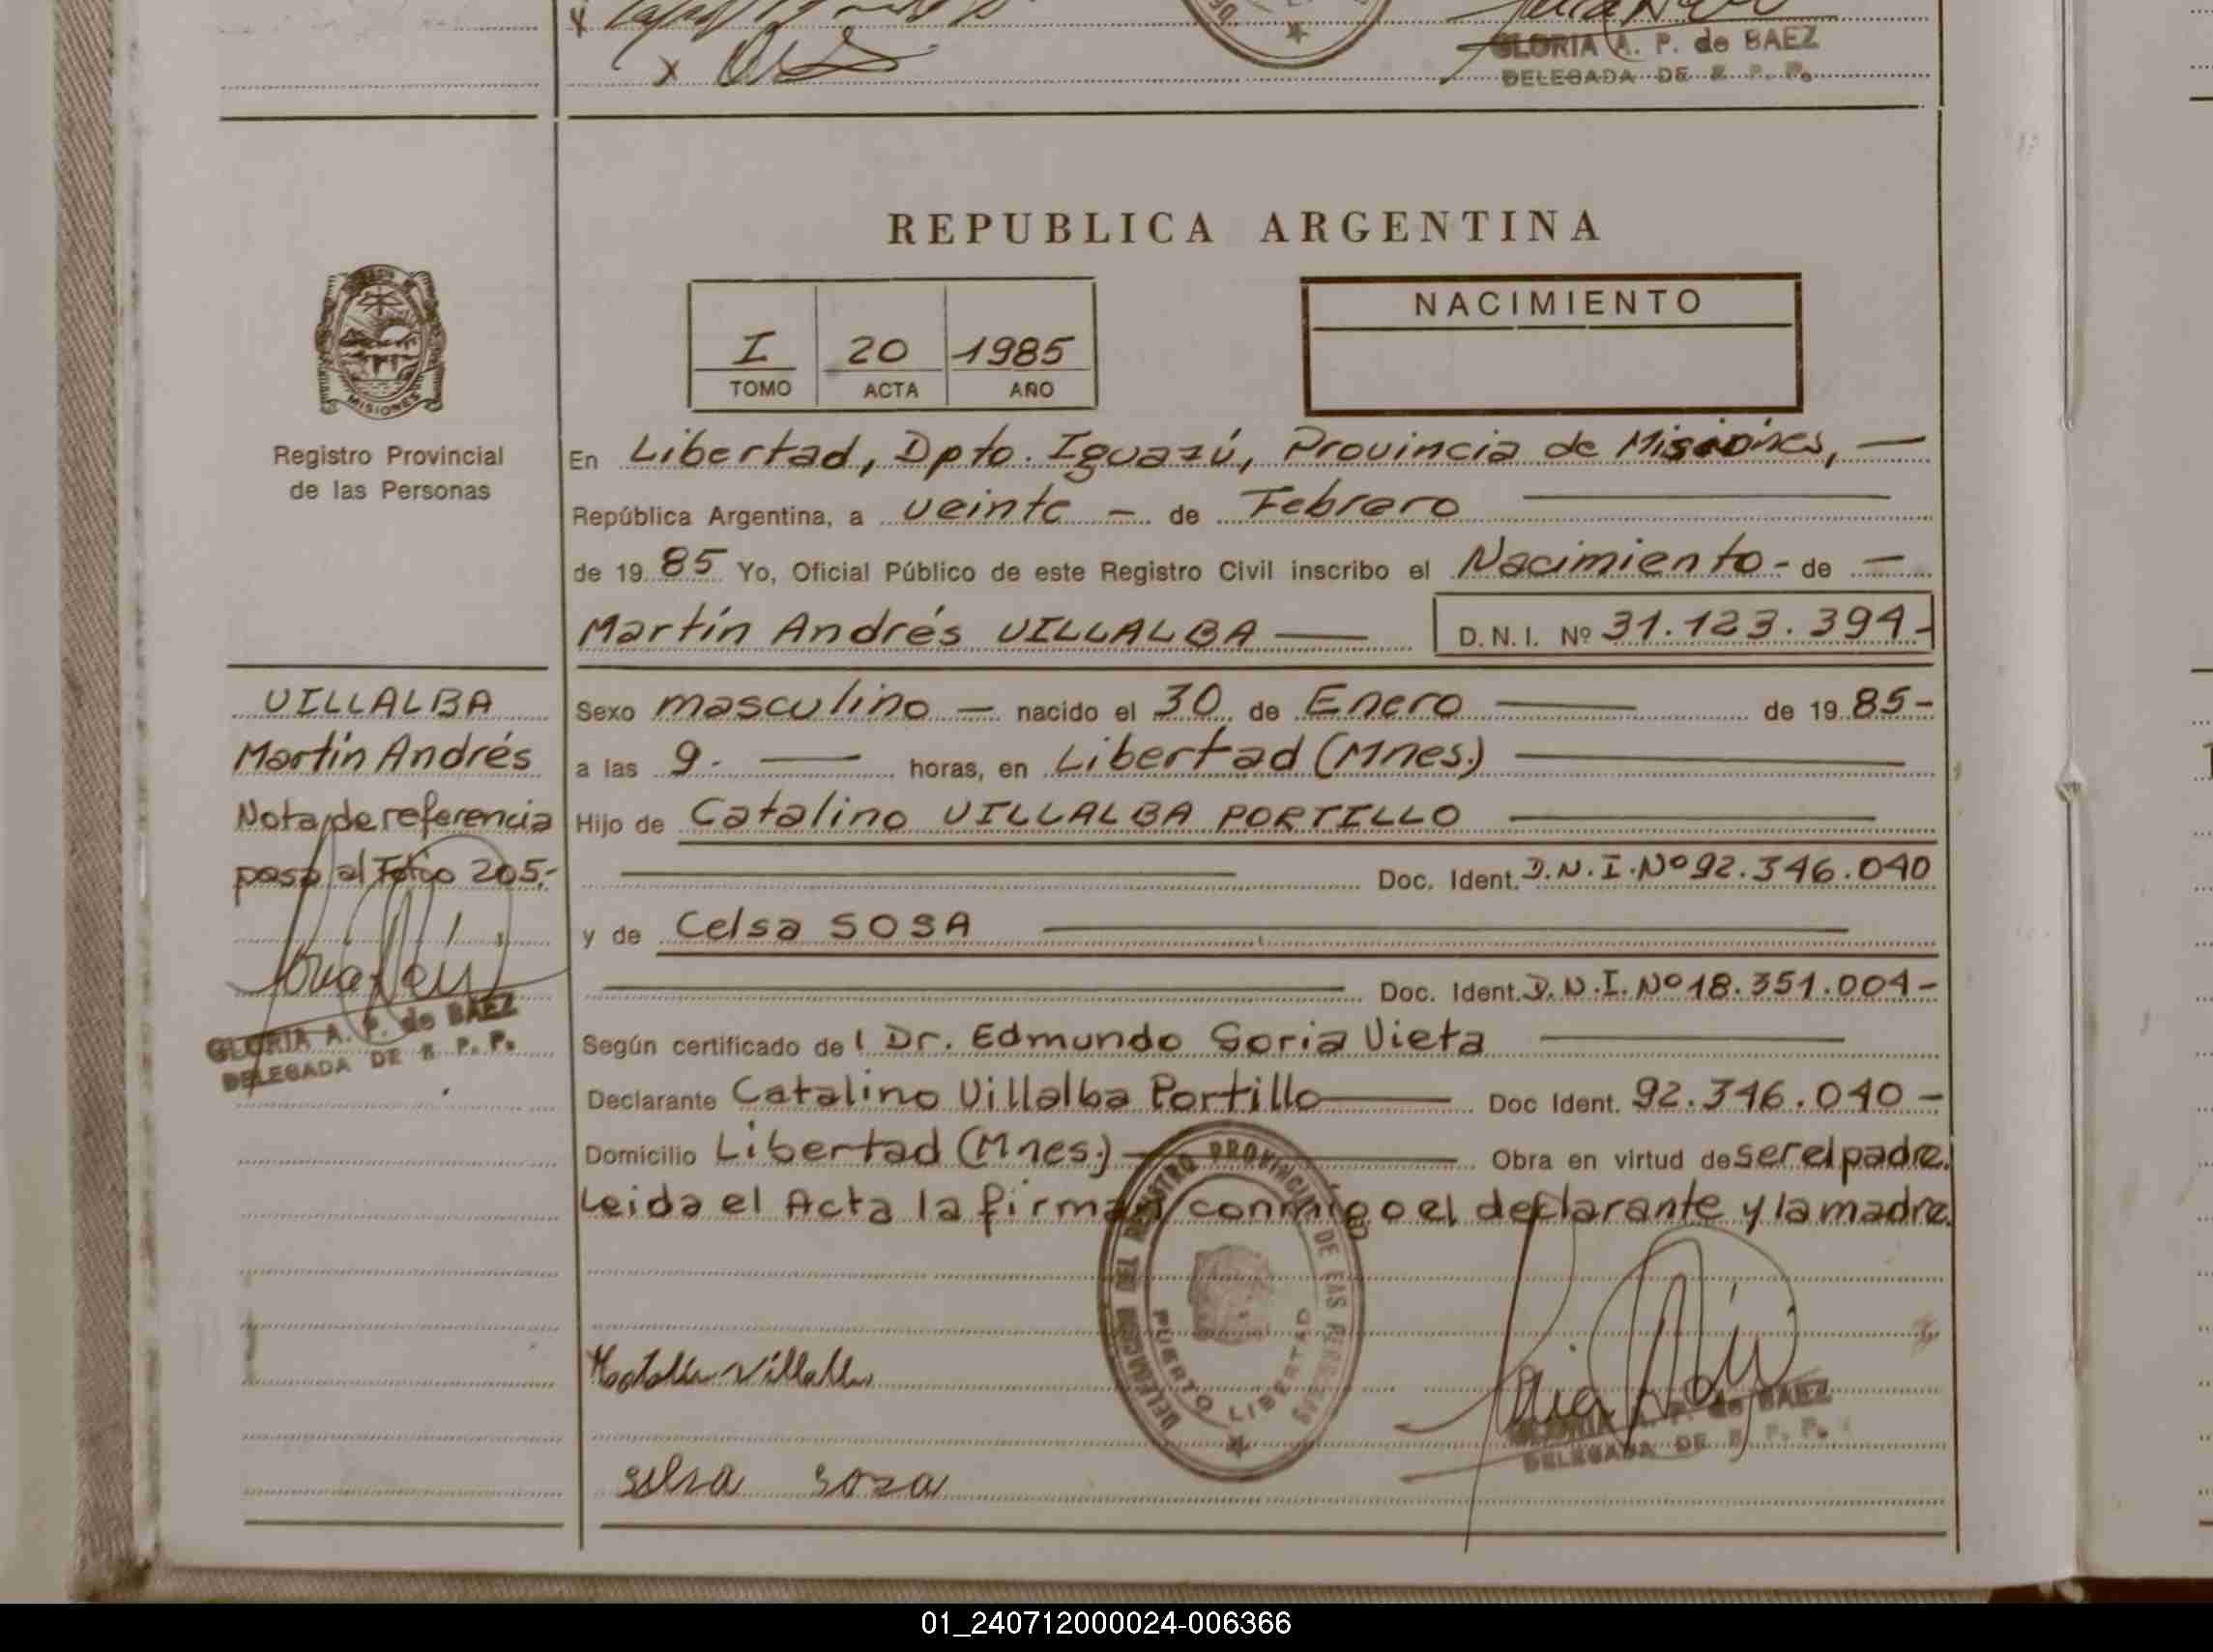 GLORIA A. P. de BAEZ
DELEGADA DE R. P. P.
REPUBLICA ARGENTINA
I 20 1985
TOMO ACTA AÑO
NACIMIENTO
MISIONES
Registro Provincial
de las Personas
En Libertad, Dpto. Iguazú, Provincia de Misiones, —
República Argentina, a veinte - de Febrero
de 19 85 Yo, Oficial Público de este Registro Civil inscribo el Nacimiento - de —
Martín Andrés VILLALBA — D.N.I. Nº 31.123.394-
VILLALBA
Martín Andrés
Nota de referencia
pasa al Folio 205.-
GLORIA A. P. de BAEZ
DELEGADA DE R. P. P.
Sexo masculino — nacido el 30 de Enero — de 19 85-
a las 9. — horas, en Libertad (Mnes.) —
Hijo de Catalino VILLALBA PORTILLO —
— Doc. Ident. D.N.I. Nº 92.346.040
y de Celsa SOSA —
— Doc. Ident. D.N.I. Nº 18.351.004-
Según certificado de l Dr. Edmundo Soria Vieta —
Declarante Catalino Villalba Portillo — Doc Ident. 92.346.040 -
Domicilio Libertad (Mnes.) — Obra en virtud de ser el padre.
Leida el Acta la firman conmigo el declarante y la madre.
DELEGACION DEL REGISTRO PROVINCIAL DE LAS PERSONAS
PUERTO LIBERTAD
Villalba
selsa sosa
GLORIA A. P. de BAEZ
DELEGADA DE R. P. P.
01_240712000024-006366